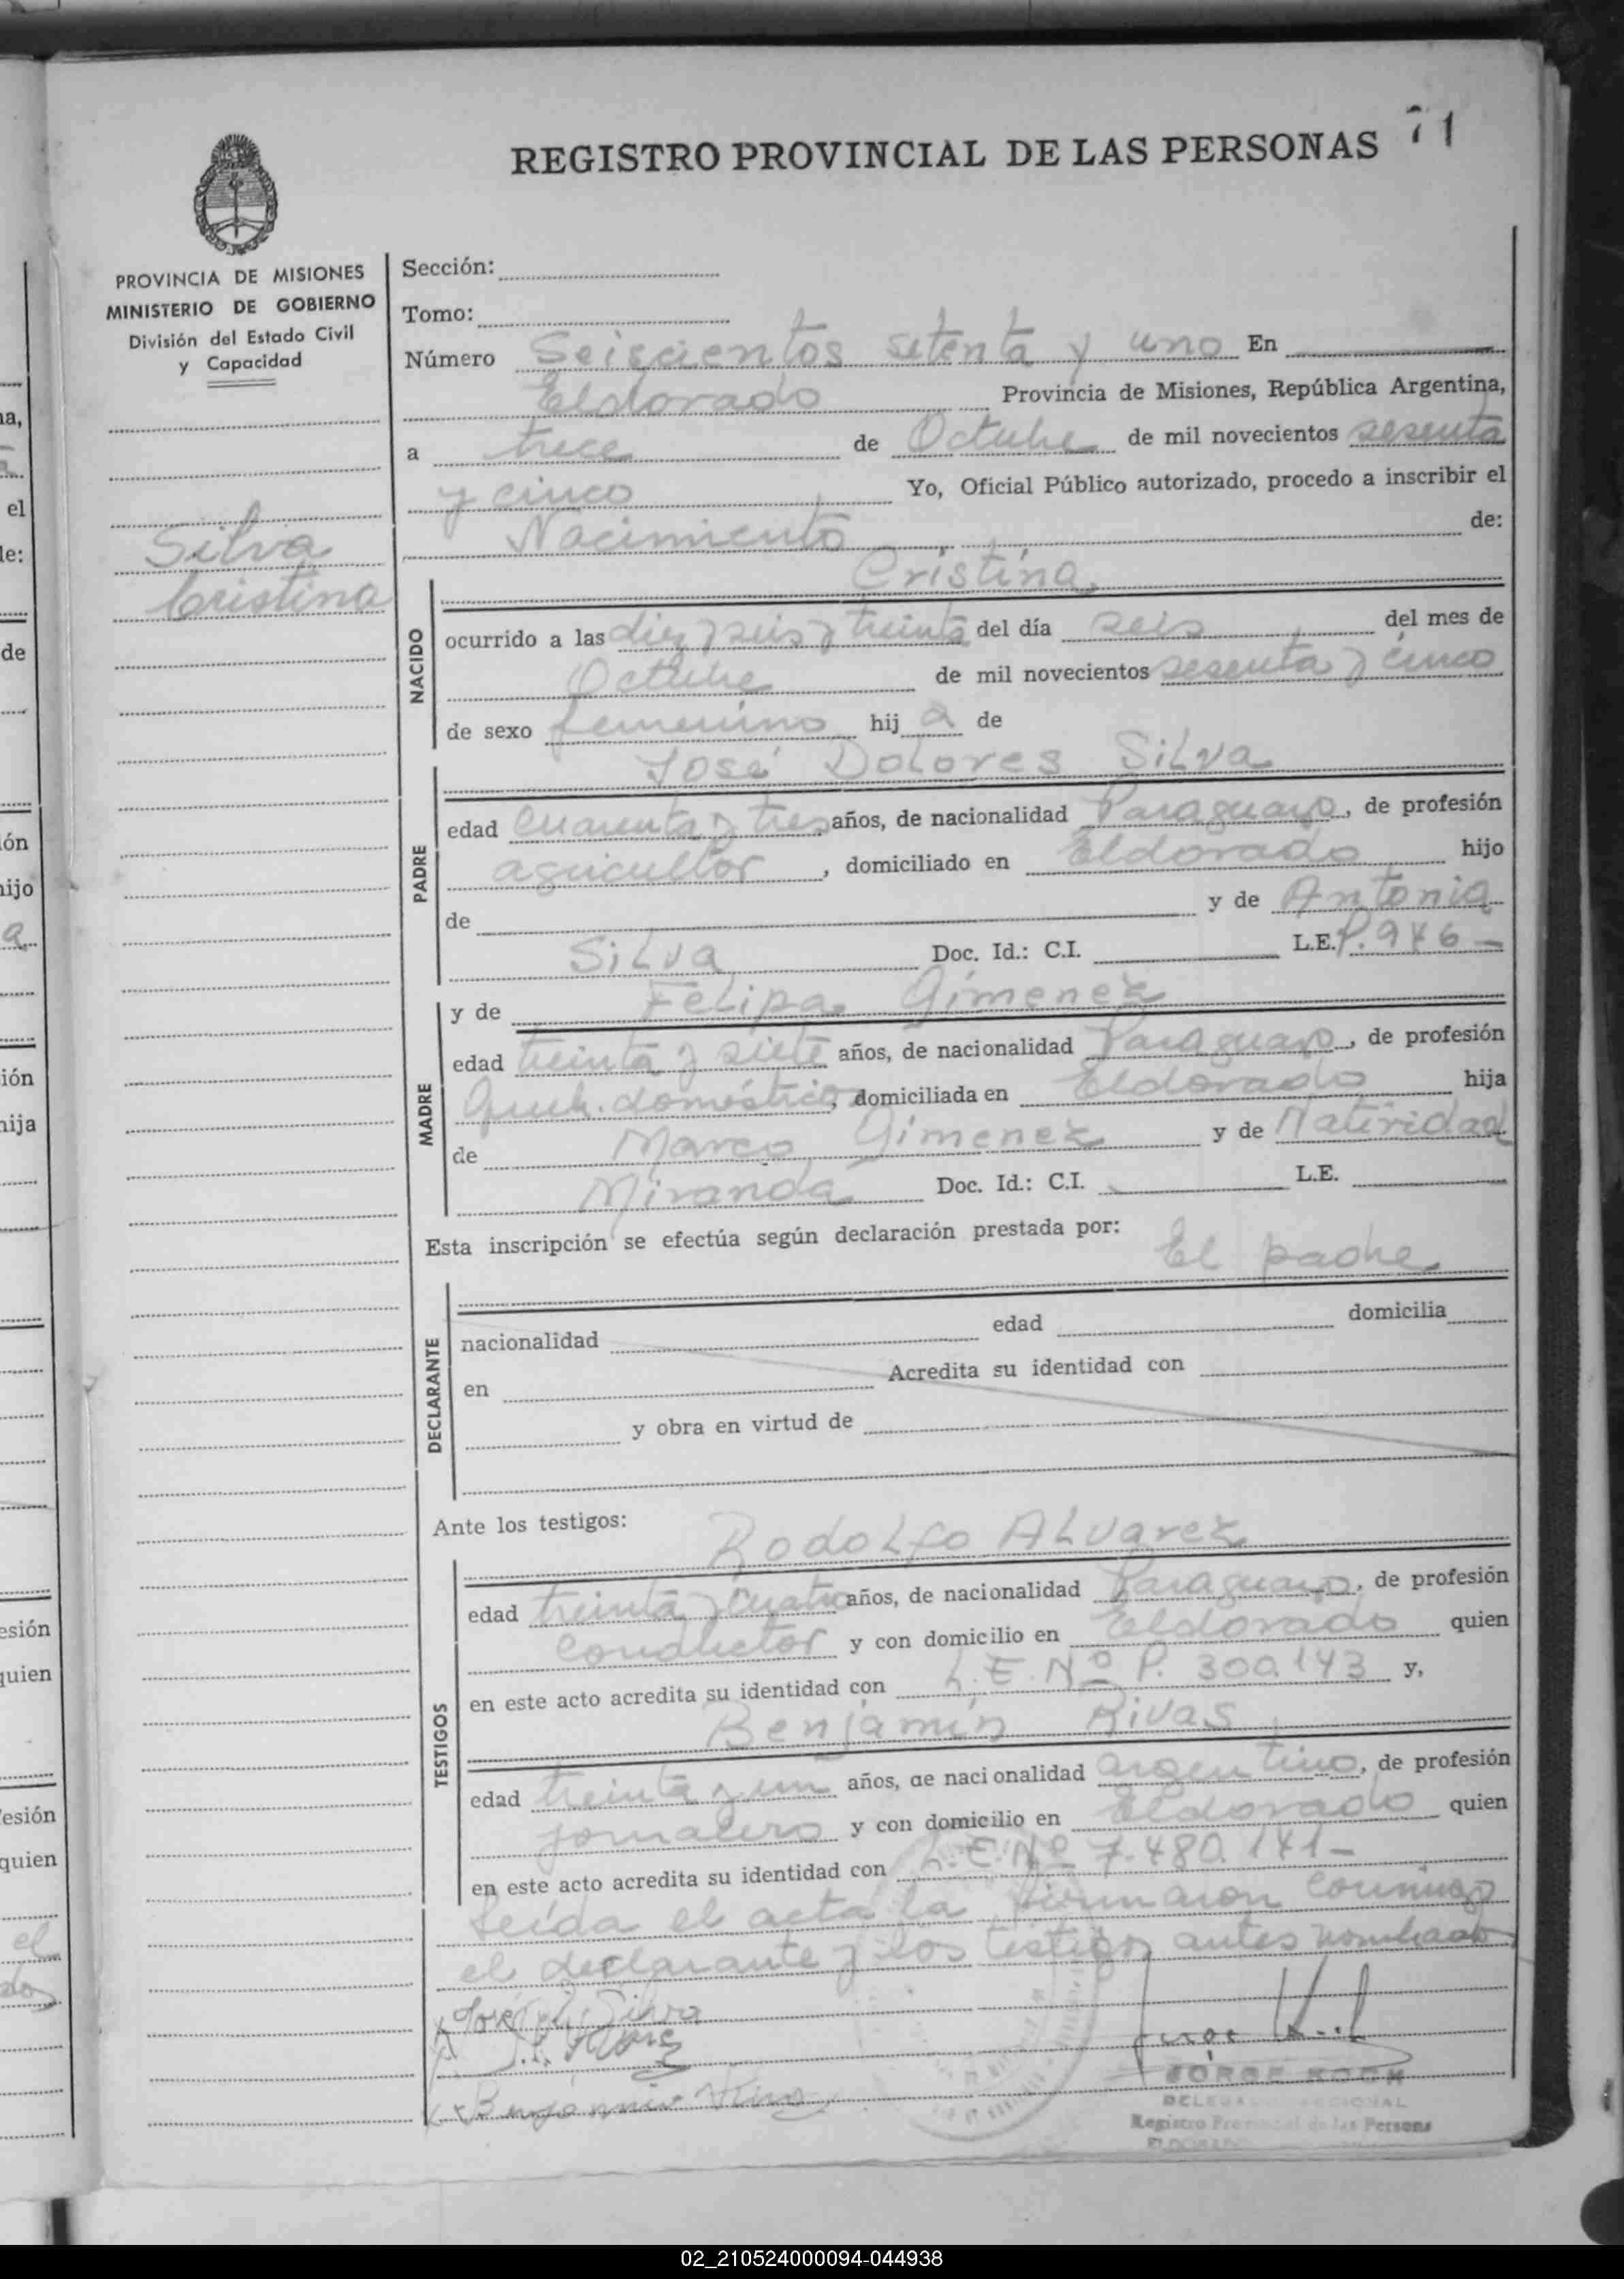 71
REGISTRO PROVINCIAL DE LAS PERSONAS
PROVINCIA DE MISIONES
MINISTERIO DE GOBIERNO
División del Estado Civil
y Capacidad
Silva
Cristina
Sección:
Tomo:
Número Seiscientos setenta y uno En
Eldorado Provincia de Misiones, República Argentina,
a trece de Octubre de mil novecientos sesenta
y cinco Yo, Oficial Público autorizado, procedo a inscribir el
Nacimiento de:
Cristina
NACIDO
ocurrido a las diez y seis y treinta del día seis del mes de
Octubre de mil novecientos sesenta y cinco
de sexo femenino hij a de
José Dolores Silva
PADRE
edad cuarenta y tres años, de nacionalidad Paraguayo, de profesión
agricultor, domiciliado en Eldorado hijo
de y de Antonia
Silva Doc. Id.: C.I. L.E. P. 946-
MADRE
y de Felipa Gimenez
edad treinta y siete años, de nacionalidad Paraguayo, de profesión
domiciliada en Eldorado hija
de Marco Gimenez y de Natividad
Miranda Doc. Id.: C.I. L.E.
Esta inscripción se efectúa según declaración prestada por:
El padre
DECLARANTE
nacionalidad edad domicilia
en Acredita su identidad con
y obra en virtud de
Ante los testigos:
Rodolfo Alvarez
TESTIGOS
edad treinta y cuatro años, de nacionalidad Paraguayo, de profesión
conductor y con domicilio en Eldorado quien
en este acto acredita su identidad con L.E. Nº P. 300.143 y,
Benjamín Rivas
edad treinta y un años, de nacionalidad argentino, de profesión
jornalero y con domicilio en Eldorado quien
en este acto acredita su identidad con L.E. Nº 7.480.141-
Leída el acta la firmaron conmigo
el declarante y los testigos antes nombrados
José D. Silva
JORGE KOCH
Registro Provincial de las Personas
ELDORADO
02_210524000094-044938